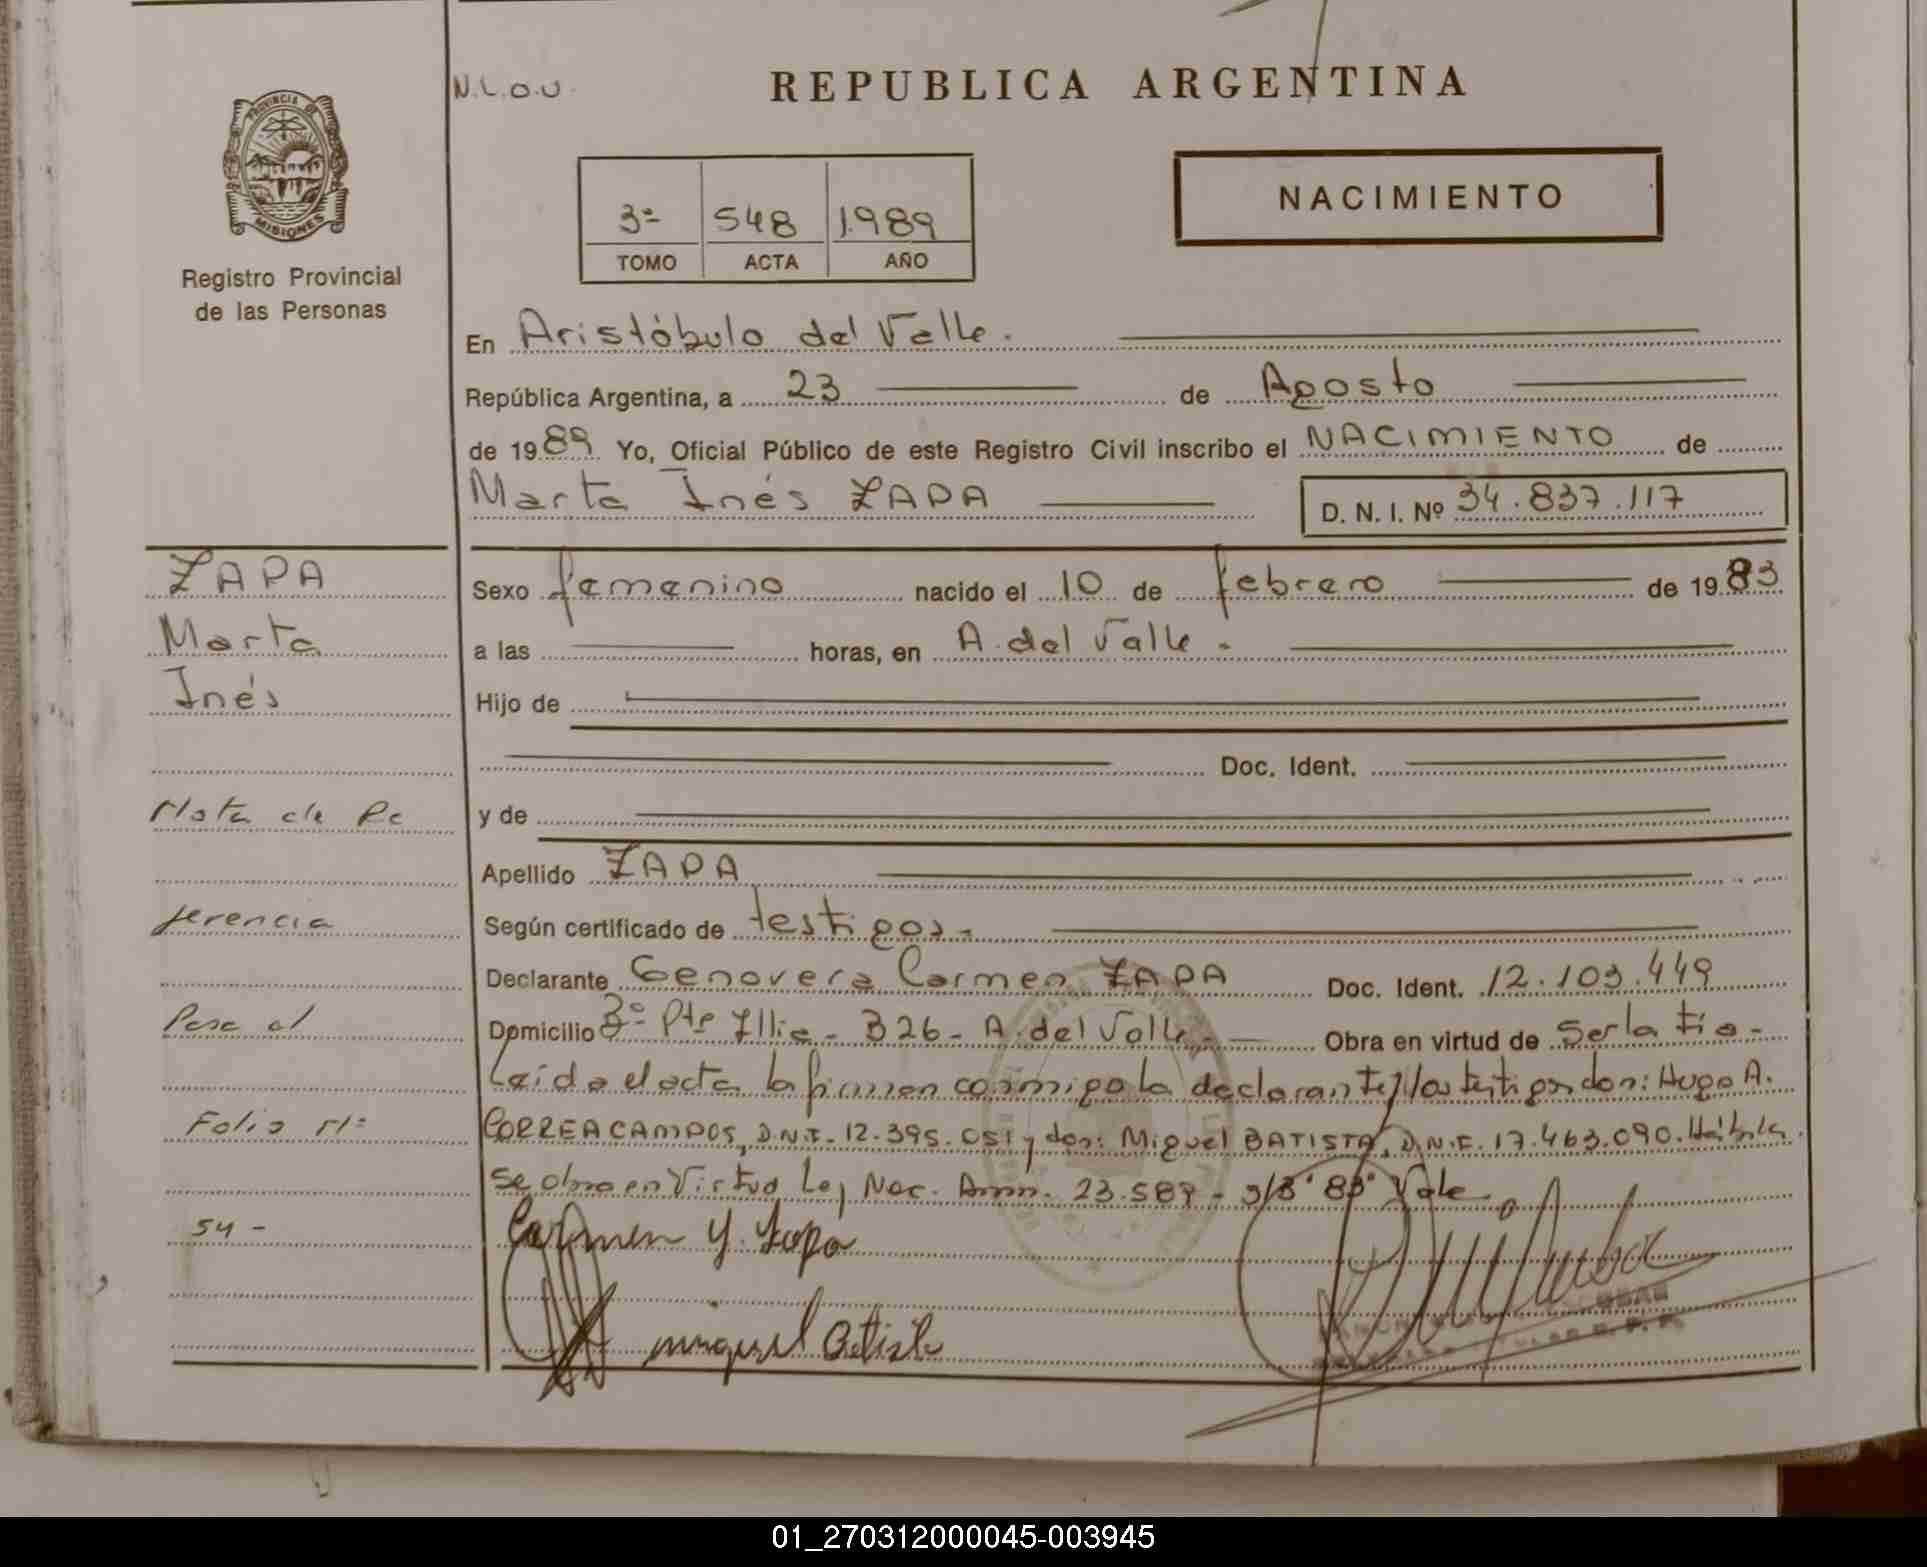 N.L.O.U.
REPUBLICA ARGENTINA
PROVINCIA DE
MISIONES
Registro Provincial
de las Personas
3º 548 1.989
TOMO ACTA AÑO
NACIMIENTO
En Aristóbulo del Valle.
República Argentina, a 23 de Agosto
de 1989 Yo, Oficial Público de este Registro Civil inscribo el NACIMIENTO de
Marta Inés ZAPA D. N. I. Nº 34.837.117
ZAPA
Marta
Inés
Nota de Re
ferencia
Pasa al
Folio Nº
54 -
Sexo femenino nacido el 10 de febrero de 1983
a las horas, en A. del Valle.
Hijo de
Doc. Ident.
y de
Apellido ZAPA
Según certificado de testigos.
Declarante Genovera Carmen ZAPA Doc. Ident. 12.103.449
Domicilio Pte Illia - 326 - A. del Valle. Obra en virtud de Ser la tía -
Leída el acta la firman conmigo la declarante y los testigos don: Hugo A.
CORREA CAMPOS, D.N.I. 12.395.051 y don: Miguel BATISTA, D.N.I. 17.463.090.
Se obra en Virtud Ley Nac. Amn. 23.589 - Vale
Carmen Y. Zapa
miguel Batista